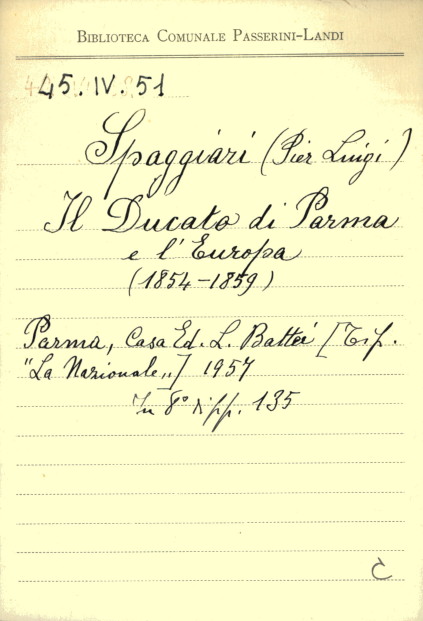 BIBLIOTECA COMUNALE PASSERINI-LANDI
45.IV.51
Spaggiari (Pier Luigi)
Il Ducato di Parma
e l'Europa
(1854-1859)
Parma, Casa Ed. L. Battei [Tip.
"La Nazionale„] 1957
In 8° di pp. 135
C